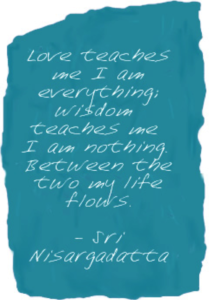 Love teaches
me I am
everything;
wisdom
teaches me
I am nothing.
Between the
two my life
flows.
- Sri
Nisargadatta